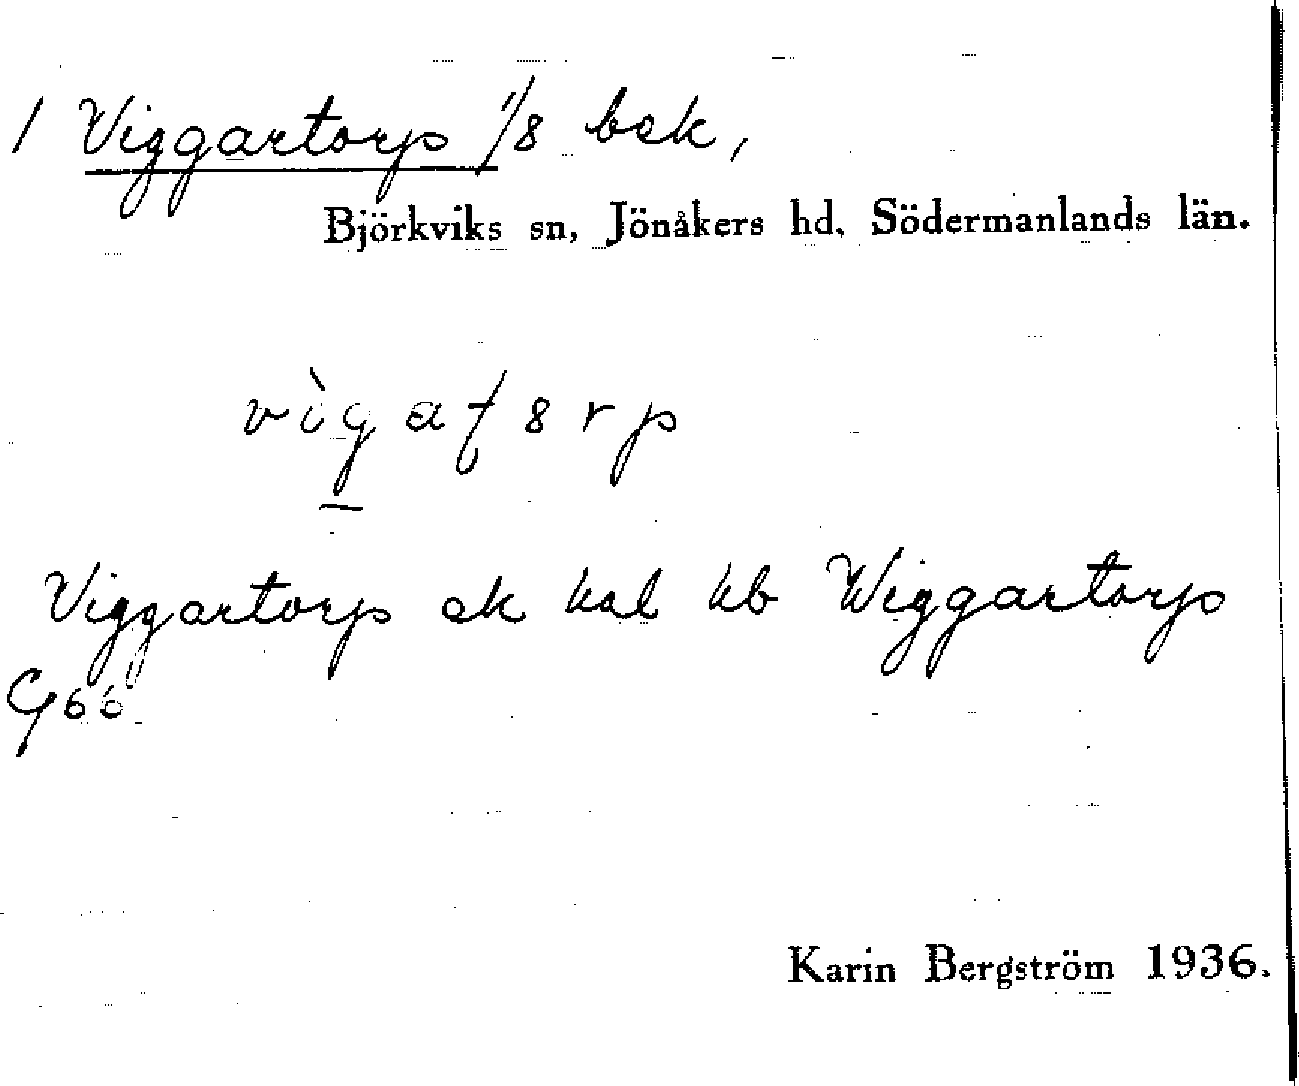 1 Viggartorp 1/8 bsk,
Björkviks sn, Jönåkers hd, Södermanlands län.
vìgatsrp
Viggartorp ek kal kb Wiggartorp
G66
Karin Bergström 1936.